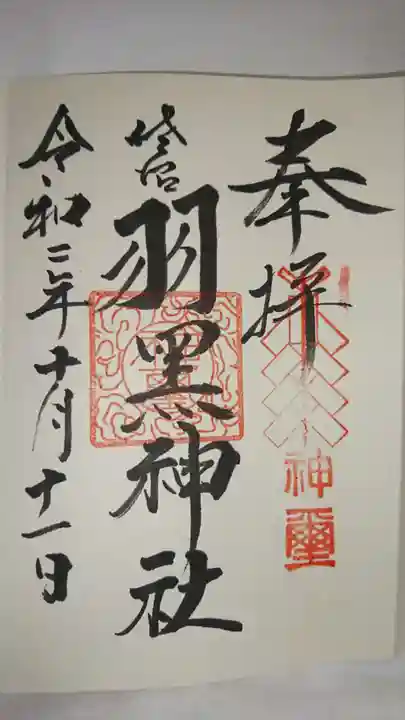 奉拝
神璽
笠宮
羽黒神社
令和二年十月十一日